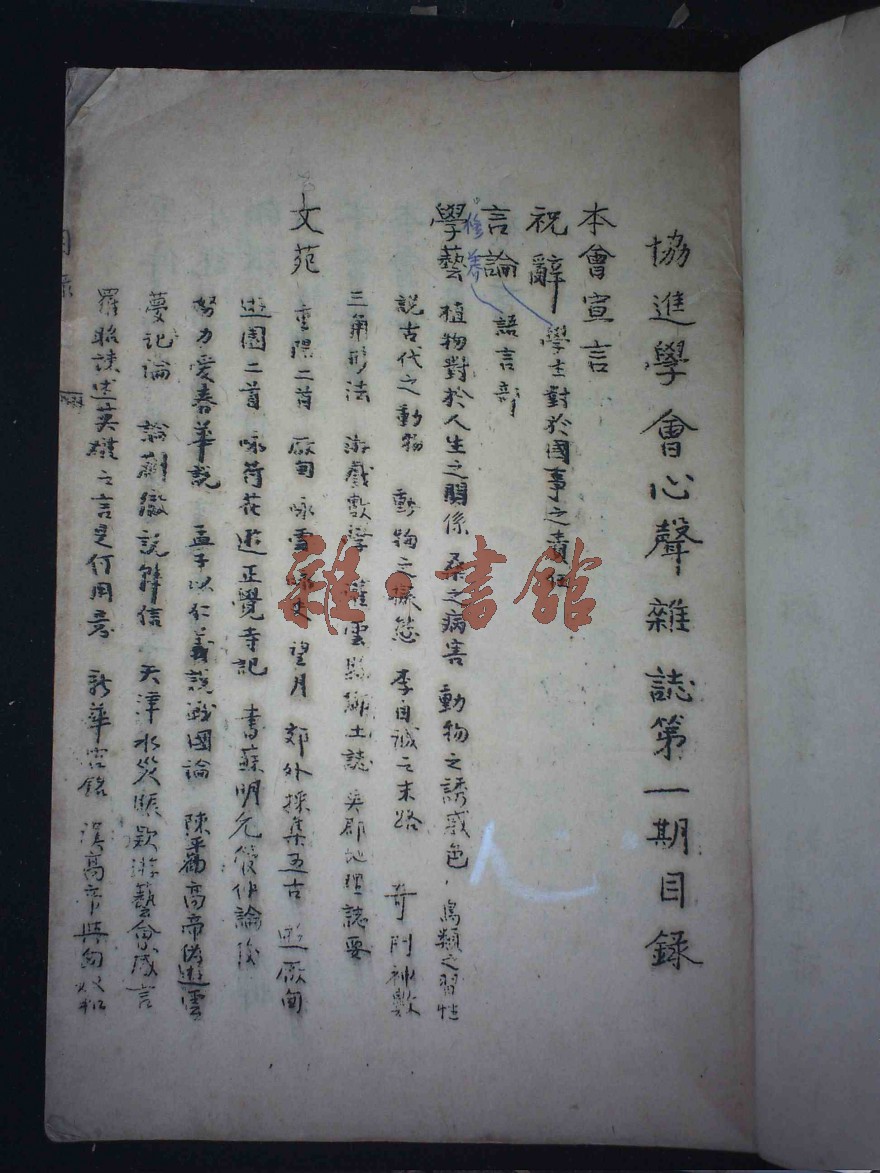 協進學會心聲雜誌第一期目錄
本會宣言
祝辭 學生對於國事之責任
言論 語言部
修養
學藝 植物對於人生之關係 桑之病害 動物之誘惑色 鳥類之習性
說古代之動物 動物之擬態 李自誠之末路 奇門神數
三角形法 游戲數學 雲縣鄉土誌 英郡地理誌要
文苑 重陽二首 廠甸 咏雪 望月 郊外採集五古 遊廠甸
遊園二首 咏荷花 遊正覺寺記 書蘇明允管仲論後
努力愛春華說 孟子以仁義說戰國論 陳平勸高帝偽遊雲
夢記論 論蒯徹說韓信 天津水災賑款游藝會感言
羅昭諫述英雄之言是何用意 新華宮銘 漢高帝與匈奴和
目錄
雜·書館